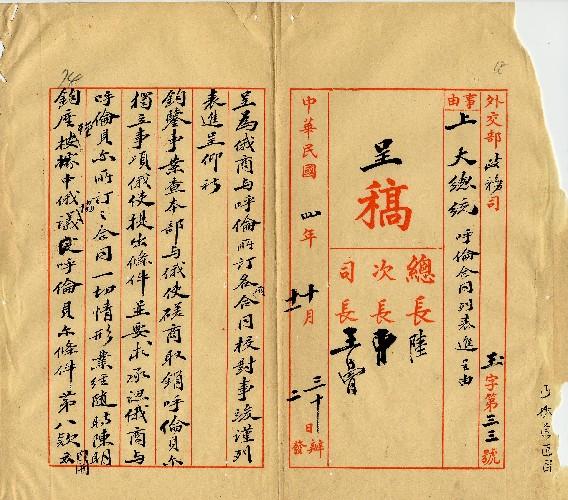 外交部 政務司
事由
上 大總統 呼倫合同列表進呈由
字第三三號
呈
稿
總長 陸
次長 曹
司長 王
中華民國 四年 十月 三十日辦
十一 二 發
呈為俄商與呼倫所訂各合同校對事竣謹列
表進呈仰祈
鈞鑒事業查本部與俄使磋商取銷呼倫貝爾
獨立事項俄使提出條件並要求承認俄商與
呼倫貝爾所訂之合同一切情形業經隨時陳明
鈞座 按 中俄議定呼倫貝爾條件第八款 開